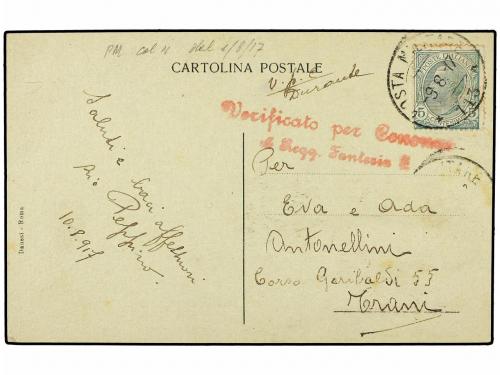 PM col N del 1/8/17
CARTOLINA POSTALE
V. C.
Durante
Verificato per Censura
Regg. Fanteria
POSTA MILITARE
9.8.17
Saluti e
baci affettuosi
Peppino
10.8.917
Per
Eva e Ada
Antonellini
Corso Garibaldi 55
Trani
Danesi - Roma